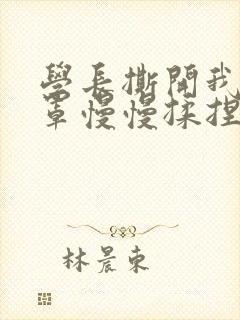 學長撕開我
罩慢慢揉捏
林晨東